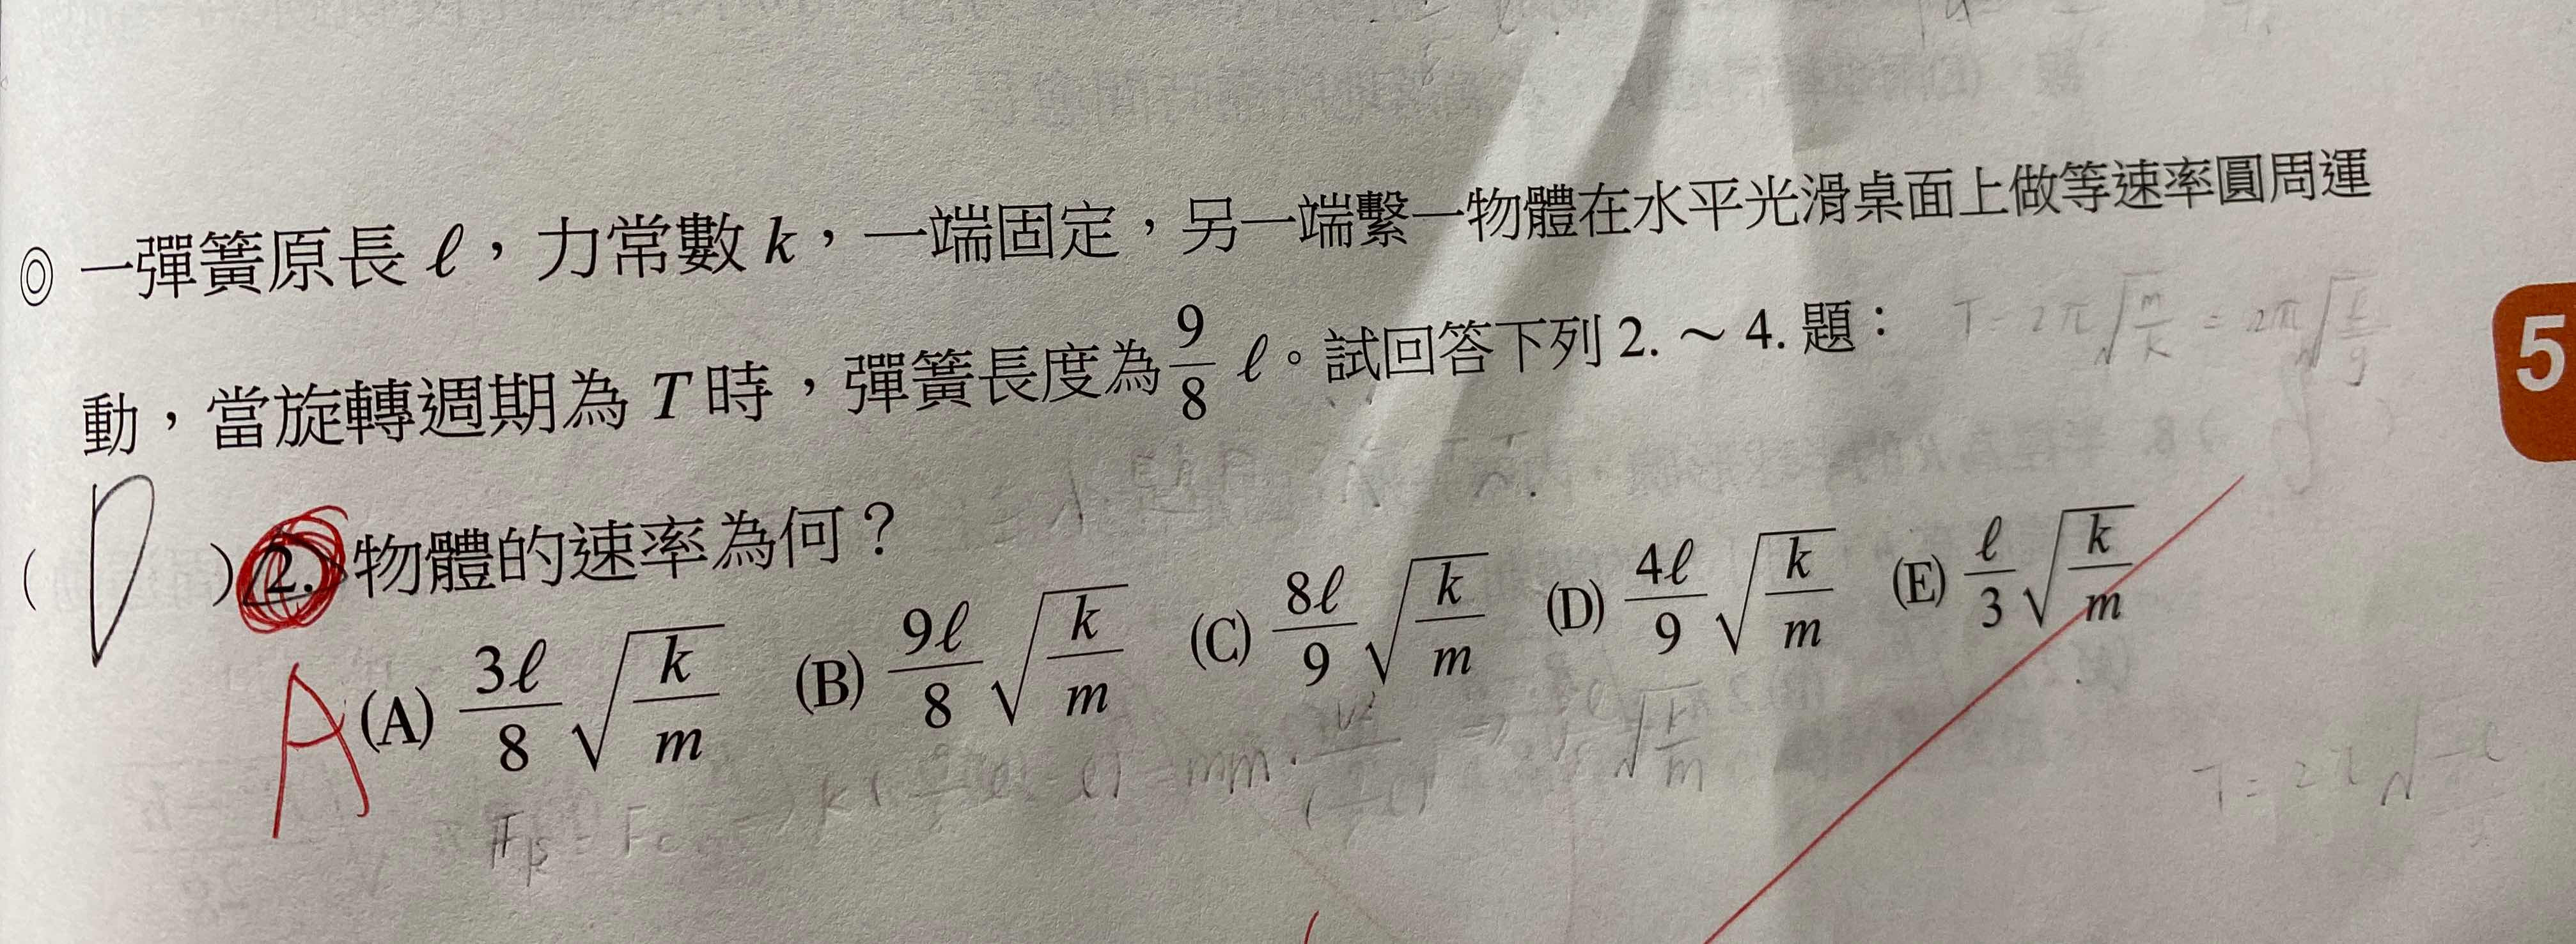 ◎ 一彈簧原長 ℓ，力常數 k，一端固定，另一端繫一物體在水平光滑桌面上做等速率圓周運
動，當旋轉週期為 T 時，彈簧長度為 9/8 ℓ。試回答下列 2. ～ 4. 題：
T = 2π√(m/k) = 2π√(ℓ/g)
( D ) 2. 物體的速率為何？
A (A) 3ℓ/8 √(k/m) (B) 9ℓ/8 √(k/m) (C) 8ℓ/9 √(k/m) (D) 4ℓ/9 √(k/m) (E) ℓ/3 √(k/m)
5